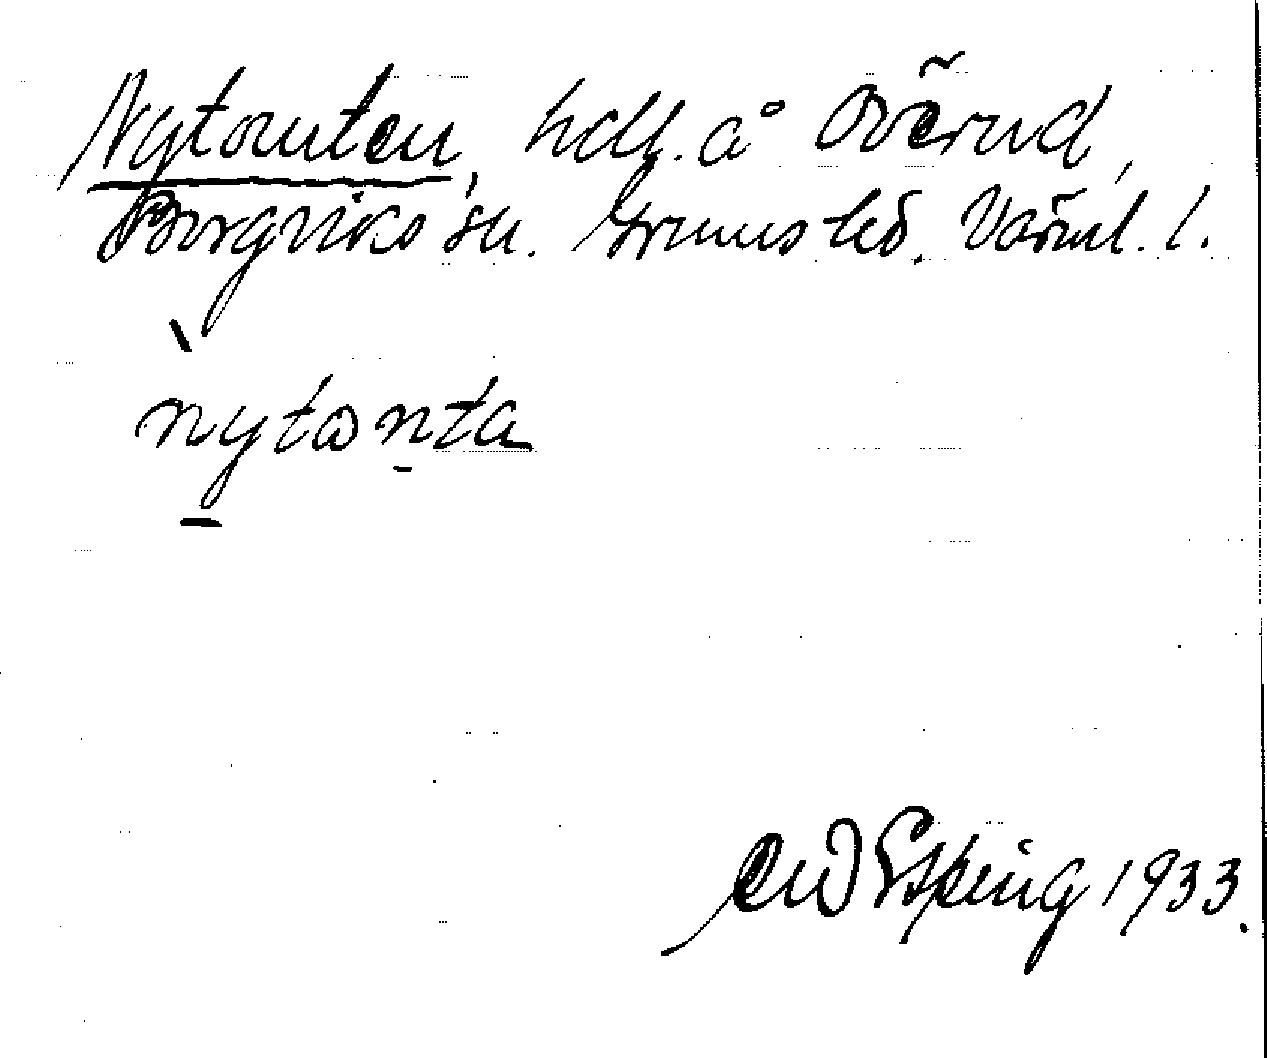 Nytomten, hdl. å Överud,
Borgviks sn. Grums hd. Värml. l.
nytomta
Espling 1933.